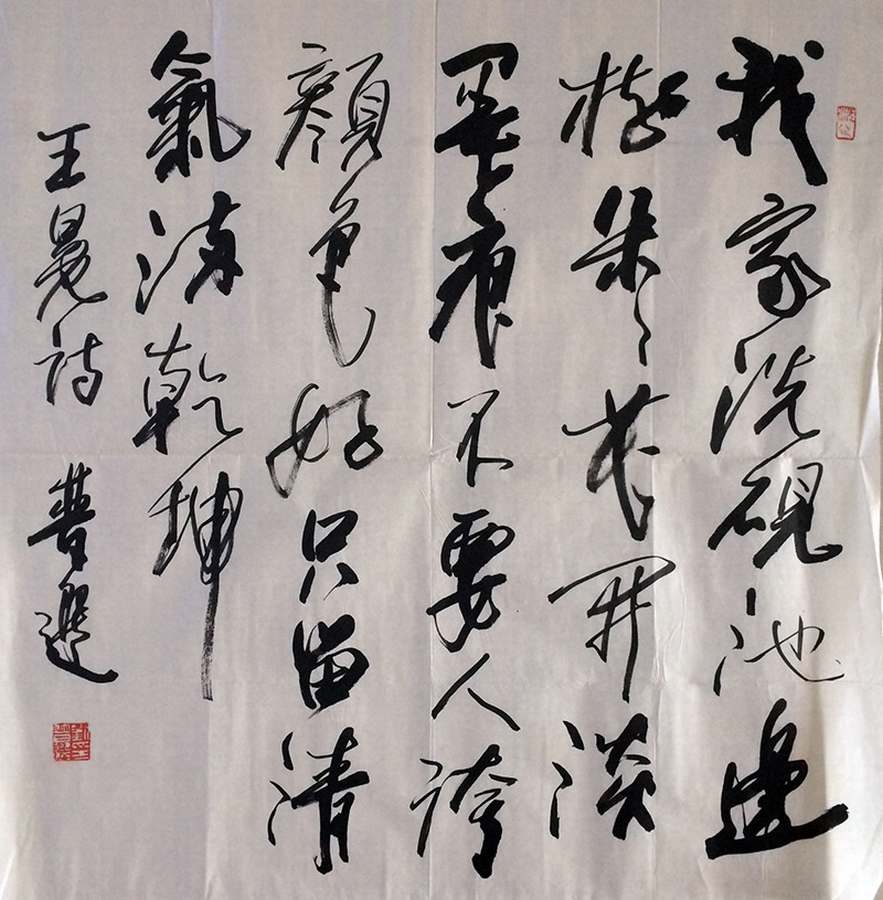 我家洗硯池邊
樹朵々花开淡
墨痕不要人誇
顏色好只留清
氣滿乾坤
王冕詩 普選